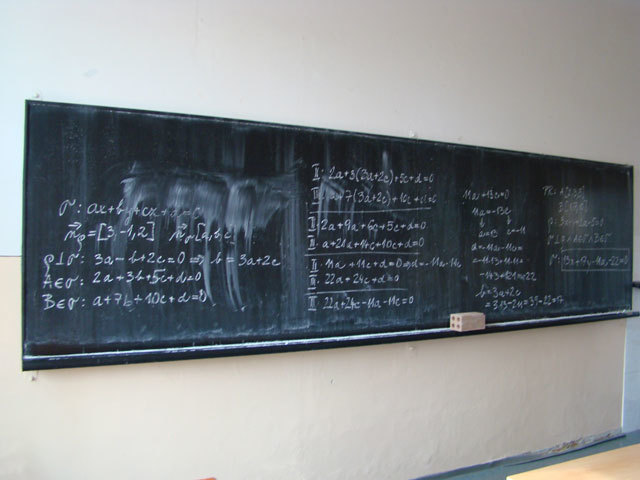 σ: ax+by+cz+d=0
n⃗ρ=[3,-1,2] n⃗σ[a,b,c]
ρ⊥σ: 3a-b+2c=0 ⇒ b=3a+2c
A∈σ: 2a+3b+5c+d=0
B∈σ: a+7b+10c+d=0
II: 2a+3(3a+2c)+5c+d=0
a+7(3a+2c)+10c+d=0
II: 2a+9a+6c+5c+d=0
a+21a+14c+10c+d=0
II: 11a+11c+d=0 ⇒ d=-11a-11c
III: 22a+24c+d=0
III: 22a+24c-11a-11c=0
11a+13c=0
11a=-13c
a=13 c=-11
d=-11a-11c=
=-11·13-11·(-11)=
=-143+121=-22
b=3a+2c
=3·13-2·11=39-22=17
ρ⊥σ ∧ A∈σ ∧ B∈σ